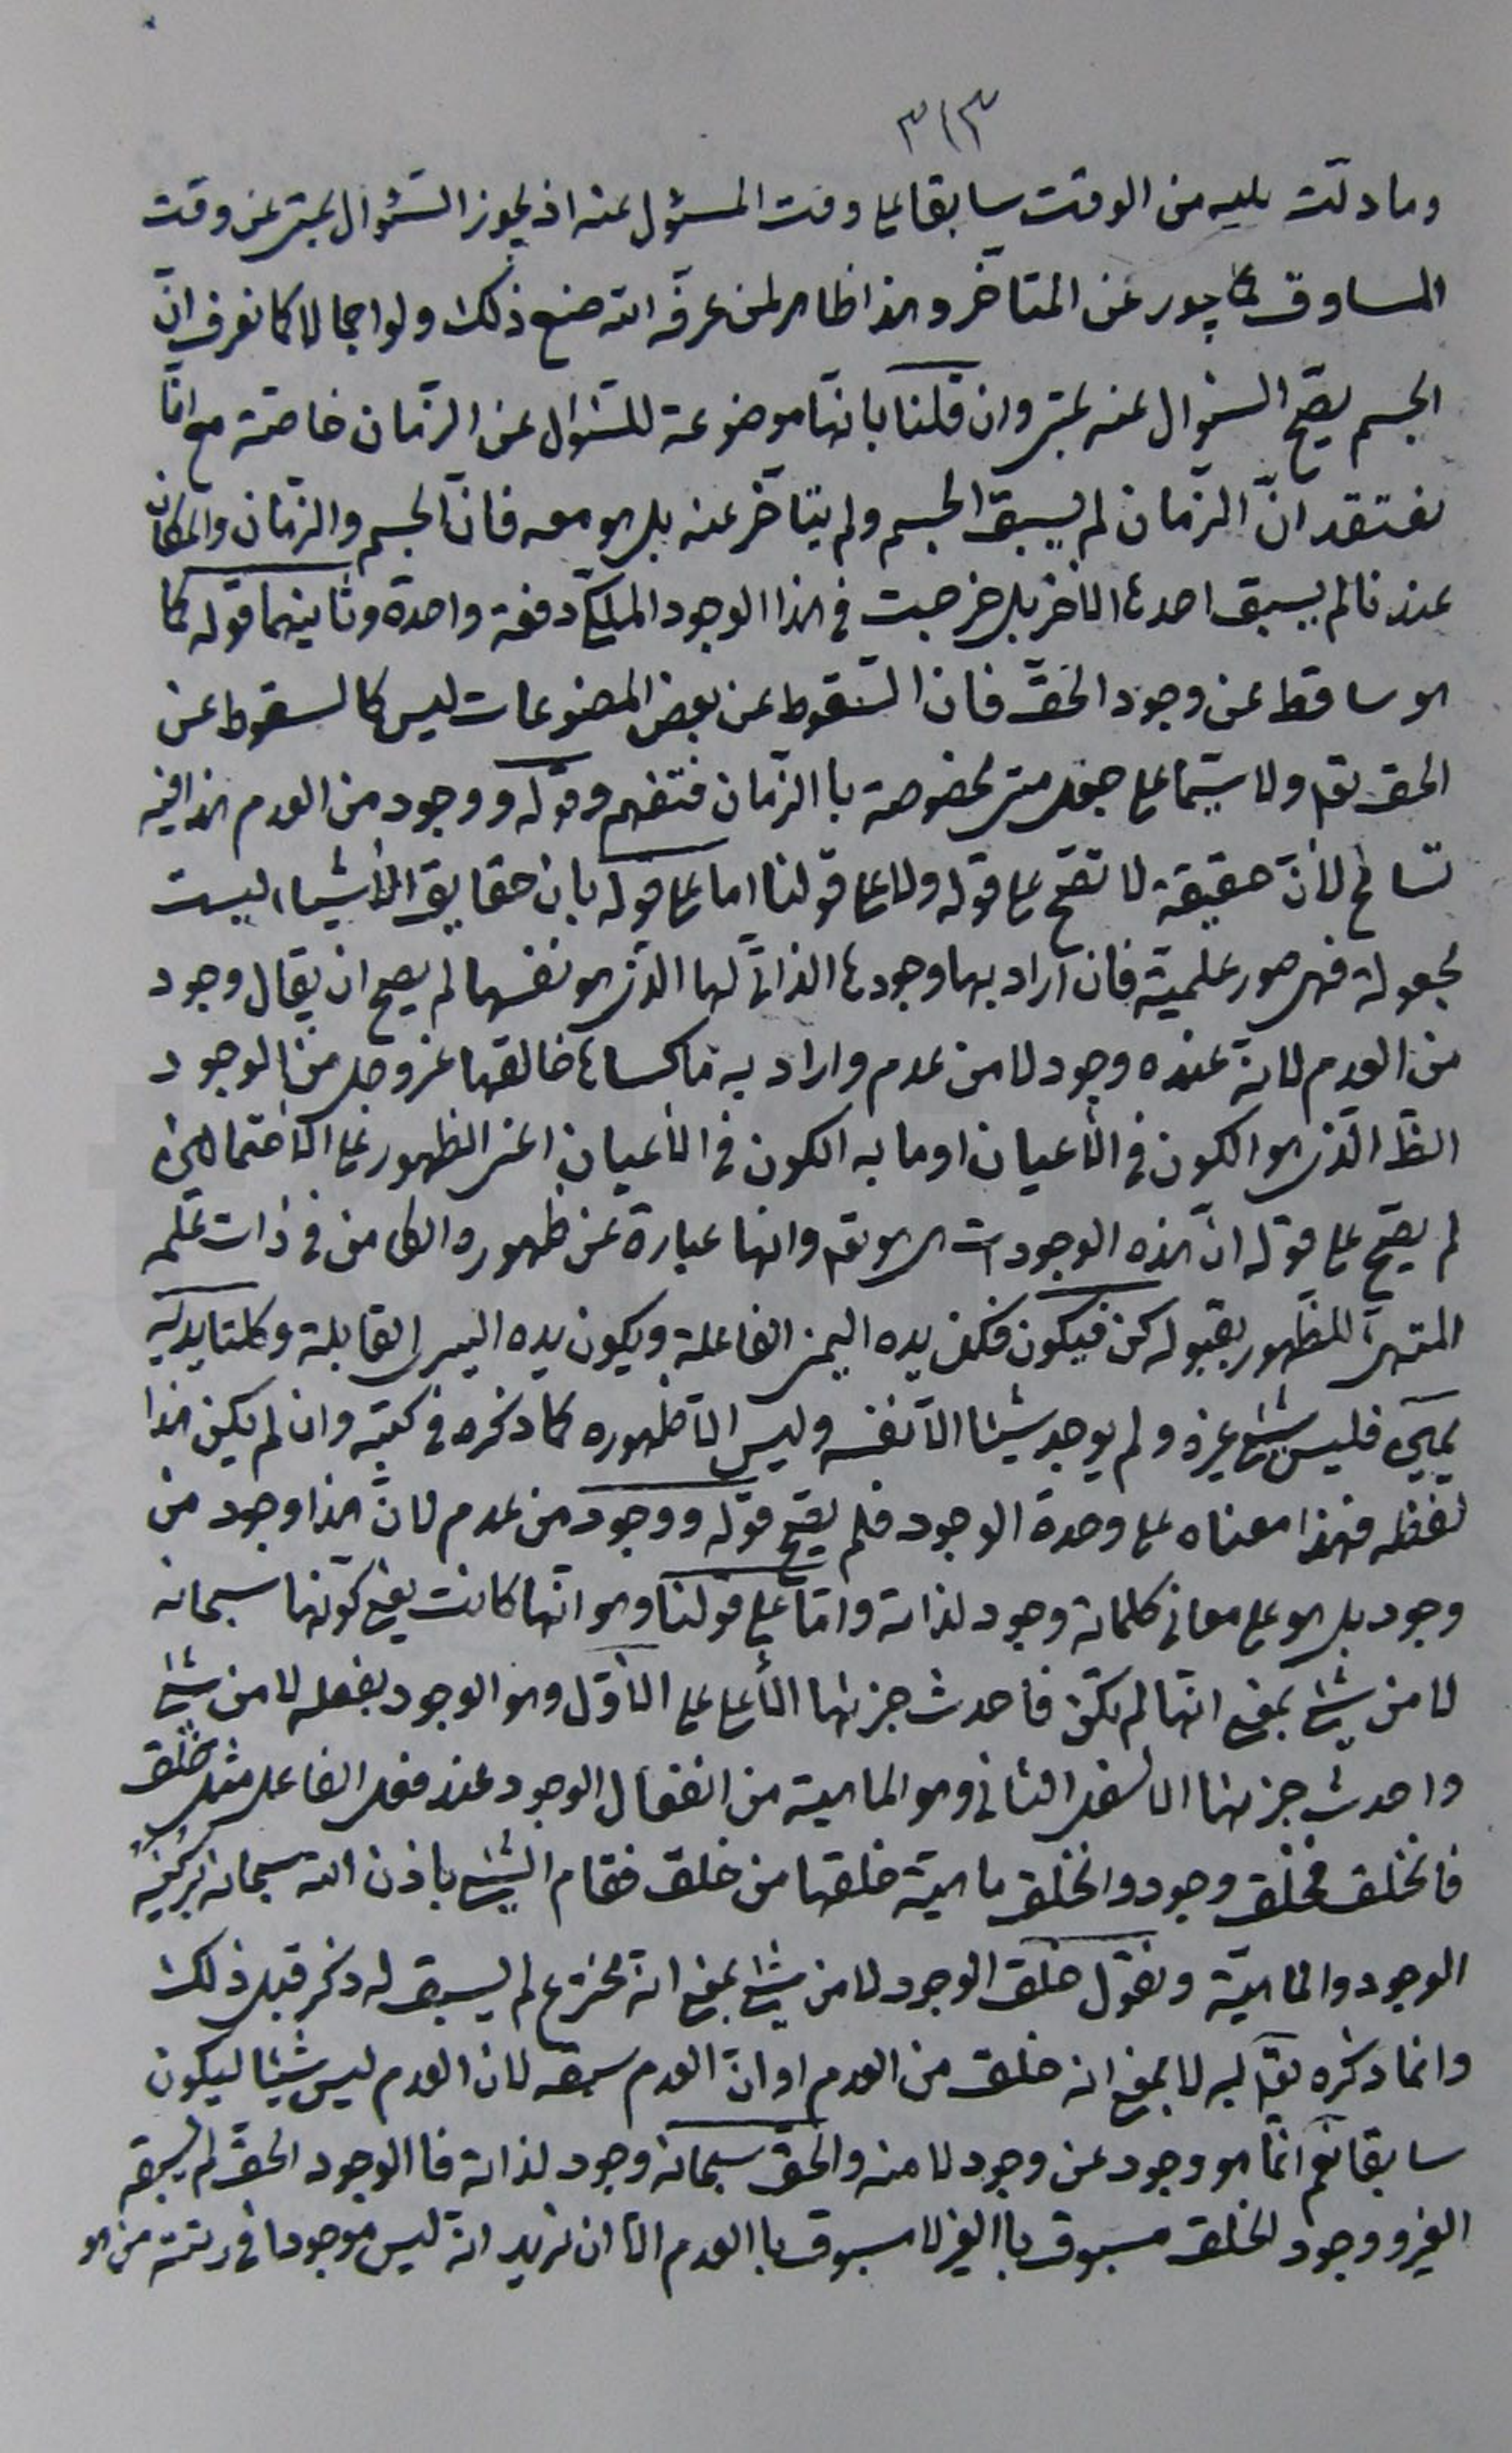 ٣١٣
وما دلّت عليه من الوقت سابقا على وقت المسئول عنه اذ يجوز السّئوال بمتى عن وقت
المساوق كما يجوز عن المتاخّر وهذا ظاهر لمن عرّفه الله صنع ذلك ولو اجمالا كما نعرف انّ
الجسم يصحّ السّئوال عنه بمتى وان قلنا بانّها موضوعة للسّئوال عن الزّمان خاصّة مع انّا
نعتقد انّ الزّمان لم يسبق الجسم ولم يتاخّر عنه بل هو معه فانّ الجسم والزّمان والمكان
عندنا لم يسبق احدها الاخر بل خرجت في هذا الوجود الملكي دفعة واحدة وثانيهما قوله كما
هو ساقط عن وجود الحقّ فان السّقوط عن بعض المصنوعات ليس كالسقوط عن
الحق تع ولا سيّما على جعل متى مخصوصة باالزّمان فتفهم وقوله ووجود من العدم هذا فيه
تسامح لأنّ حقيقة لا تصحّ على قوله ولا على قولنا اما على قوله بان حقايق الأشياء ليست
مجعولة فهى صور علميّة فان اراد بها وجودها الذاتىّ لها الّذى هو نفسها لم يصح ان يقال وجود
من العدم لانّه عنده وجود لا من عدم واراد به ما كساها خالقها عز وجل من الوجود
الظ الّذى هو الكون في الأعيان او ما به الكون في الأعيان اعنى الظهور على الاحتمالين
لم يصحّ على قوله انّ هذه الوجودات هى هو تع وانها عبارة عن ظهوره الكامن في ذات علمه
المتهيّئ للظّهور بقبوله كن فيكون فكن يده اليمنى الفاعلة ويكون يده اليسرى القابلة وكلتا يديه
يمين فليس شئ غيره ولم يوجد شيئا الّا نفسه وليس الّا ظهوره كما ذكره في كتبه وان لم يكن هذا
لفظه فهذا معناه على وحدة الوجود فلم يصحّ قوله ووجود من عدم لانّ هذا وجد من
وجود بل هو على معانى كلماته وجود لذاته وامّا على قولنا وهو انّها كانت يعنى كوّنها سبحانه
لا من شئ بمعنى انّها لم تكن فاحدث جزئها الأعلى على الأوّل وهو الوجود بفعله لا من شئ
واحدث جزئها الاسفل الثانى وهو الماهية من انفعال الوجود عند فعل الفاعل مثل خلق
فانخلق فخلق وجود وانخلق ماهيّة خلقها من خلق فقام الشئ باذن الله سبحانه بركنيه
الوجود والماهيّة ونقول خلق الوجود لا من شئ بمعنى انّه مخترع لم يسبق له ذكر قبل ذلك
وانما ذكره تع به لا بمعنى انه خلق من العدم او انّ العدم سبقه لان العدم ليس شيئا ليكون
سابقا نعم انّما هو وجود عن وجود لا منه والحقّ سبحانه وجود لذاته فاالوجود الحقّ لم يسبقه
الغير ووجود الخلق مسبوق باالغير لا مسبوق باالعدم الّا ان نريد انّه ليس موجودا في رتبته من هو